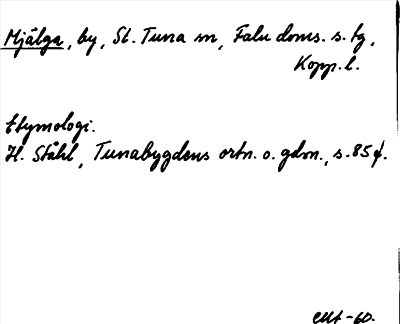 Mjälga, by, St. Tuna sn, Falu doms. s. tg,
Kopp. l.
Etymologi.
H. Ståhl, Tunabygdens ortn. o. gdn., s. 85 f.
-60.